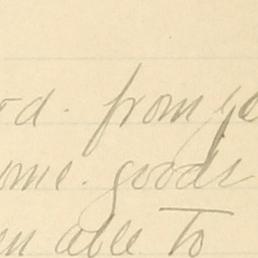 od. from ye
ome. goods
en able To